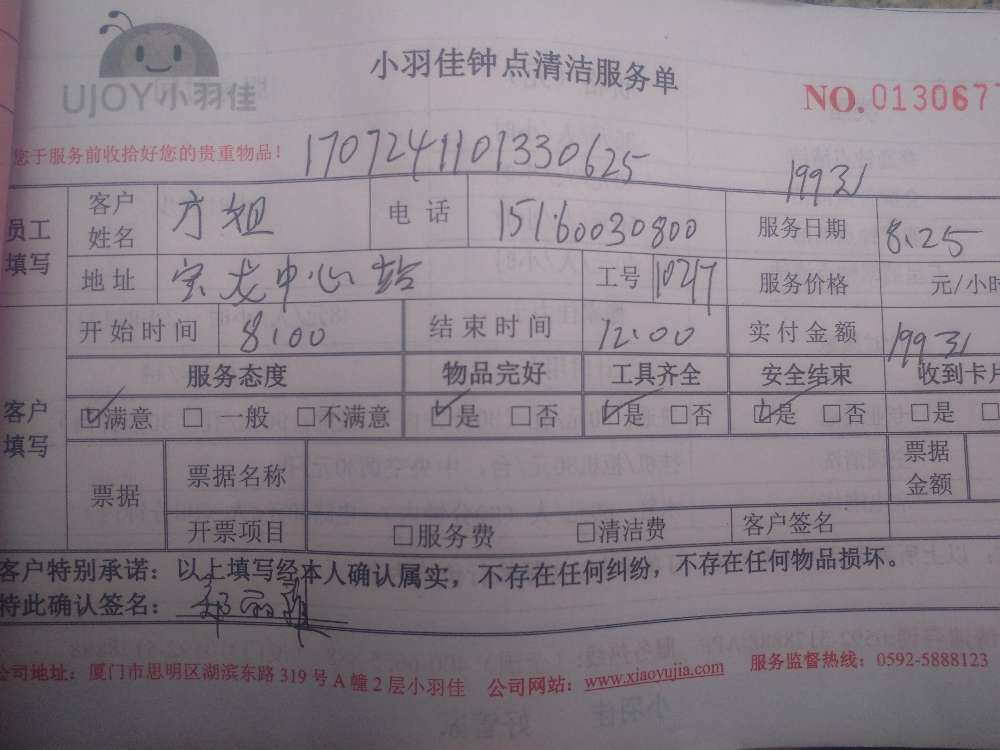 UJOY小羽佳
小羽佳钟点清洁服务单
NO.0130677
您于服务前收拾好您的贵重物品！
1707241101330625
19931
员工填写 客户姓名 方姐 电话 15160030800 服务日期 8.25
地址 宝龙中心站 工号 1027 服务价格 元/小时
客户填写 开始时间 8:00 结束时间 12:00 实付金额 19931
服务态度 物品完好 工具齐全 安全结束 收到卡片
☑满意 □一般 □不满意 ☑是 □否 ☑是 □否 ☑是 □否 □是 □
票据 票据名称 票据金额
开票项目 □服务费 □清洁费 客户签名
客户特别承诺：以上填写经本人确认属实，不存在任何纠纷，不存在任何物品损坏。
特此确认签名：
公司地址：厦门市思明区湖滨东路319号A幢2层小羽佳 公司网站：www.xiaoyujia.com 服务监督热线：0592-5888123